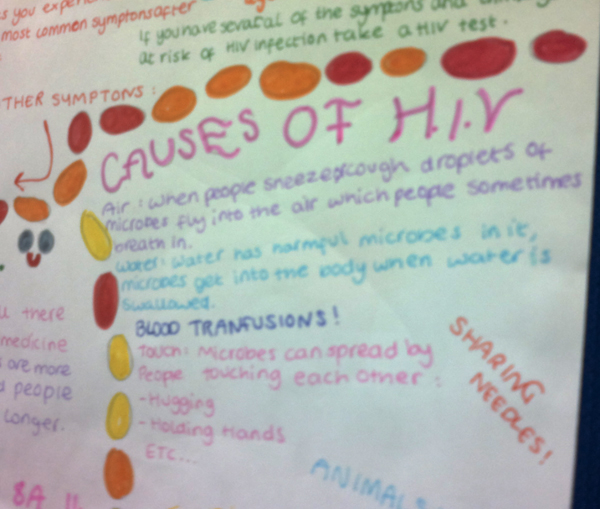 s you experi
most common symptons after
If you have several of the symptons and
at risk of HIV infection take a HIV test.
THER SYMPTONS:
CAUSES OF H.I.V
Air: when people sneeze/cough droplets of
microbes fly into the air which people sometimes
breath in.
Water: Water has harmful microbes in it,
microbes get into the body when water is
swallowed.
BLOOD TRANFUSIONS!
Touch: Microbes can spread by
People touching each other:
-Hugging
-Holding Hands
ETC...
SHARING
NEEDLES!
ANIMALS
there
medicine
are more
people
longer.
8A